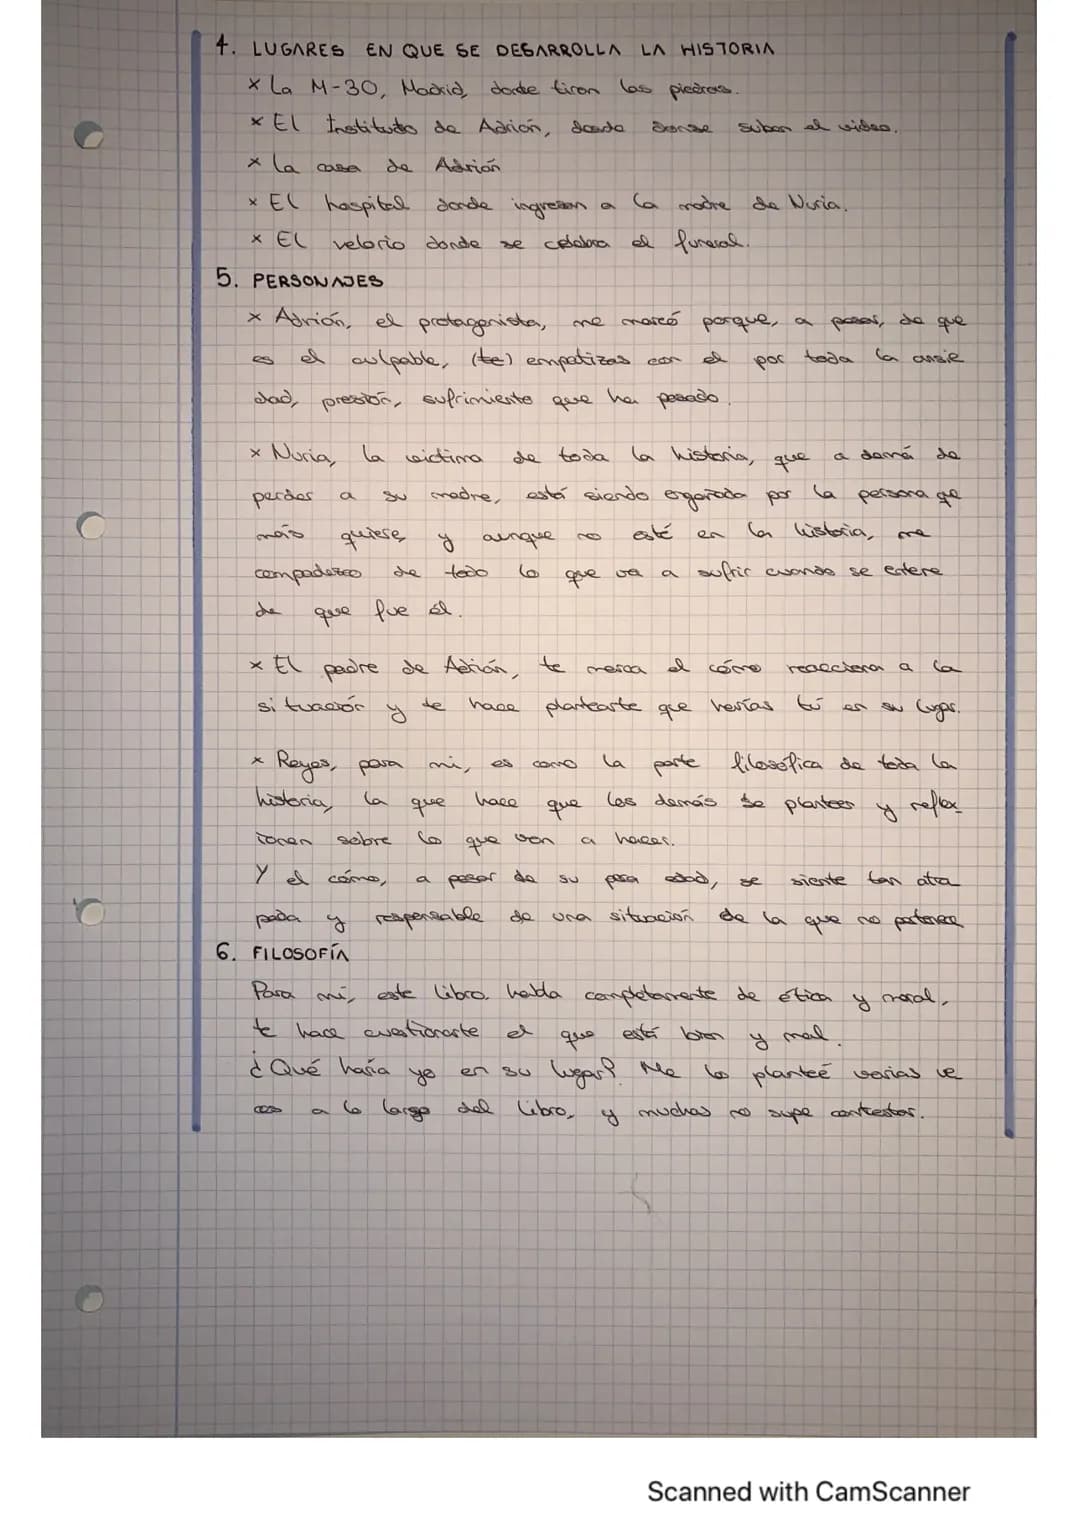 4. LUGARES EN QUE SE DESARROLLA LA HISTORIA
x La M-30, Madrid, donde tiran las piedras.
x El Instituto de Adrián, desde donde suben el video.
x La casa de Adrián
x El hospital donde ingresan a la madre de Nuria.
x El velorio donde se celebra el funeral.
5. PERSONAJES
x Adrián, el protagonista, me marcó porque, a pesar, de que
es el culpable, (te) empatizas con el por toda la ansie
dad, presión, sufrimiento que ha pasado.
x Nuria, la victima de toda la historia, que a demá de
perder a su madre, está siendo engañada por la persona qe
más quiere, y aunque no esté en la historia, me
compadezco de todo lo que va a sufrir cuando se entere
de que fue él.
x El padre de Adrián, te marca el cómo reacciona a la
situación y te hace plantearte que harías tú en su lugar.
x Reyes, para mi, es como la parte filosófica de toda la
historia, la que hace que los demás se planteen y reflex
ionen sobre lo que van a hacer.
Y el cómo, a pesar de su poca edad, se siente tan atra
pada y responsable de una situación de la que no pertenece
6. FILOSOFÍA
Para mí, este libro, habla completamente de ética y moral,
te hace cuestionarte el que está bien y mal.
¿Qué haría yo en su lugar? Me lo planteé varias ve
ces a lo largo del libro, y muchas no supe contestar.
Scanned with CamScanner